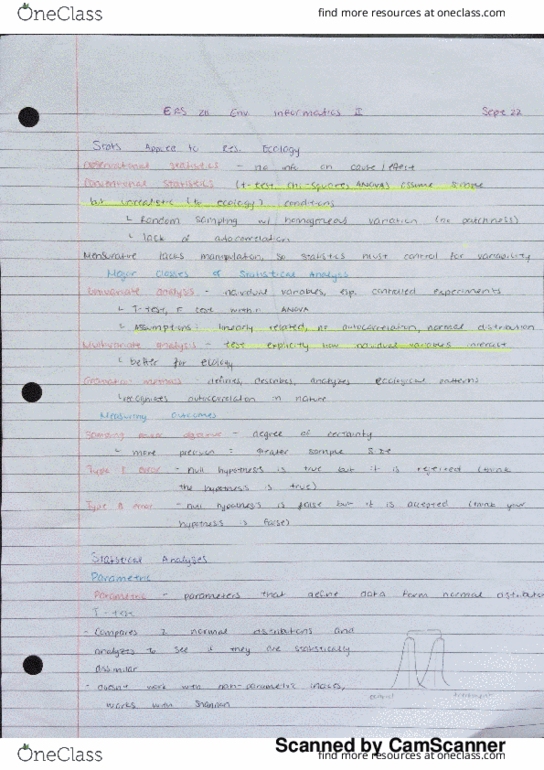 OneClass
find more resources at oneclass.com
Env Informatics II Sept 22
Stats Applied to Res. Ecology
Observational Statistics - no info on cause/effect
Conventional Statistics (t-test, chi-squares, ANOVA) assume simple
but unrealistic (to ecology) conditions
└ Random sampling w/ homogeneous variation (no patchiness)
└ lack of autocorrelation
Mensurative lacks manipulation, so statistics must control for variability
Major Classes of Statistical Analysis
analysis - individual variables, esp. controlled experiments
└ T-test, F test within ANOVA
└ Assumptions: linearly related, no autocorrelation, normal distribution
Multivariate analysis - test explicitly how individual variables interact
└ better for ecology
- defines, describes, analyzes ecological patterns
└ recognizes autocorrelation in nature
Measuring Outcomes
- degree of certainty
└ more precision = greater sample size
Type I Error - null hypothesis is true but it is rejected (think
the hypothesis is true)
Type II error - null hypothesis is false but it is accepted (think your
hypothesis is false)
Statistical Analyses
Parametric
Parametric - parameters that define data form normal
T-test
- Compares 2 normal distributions and
analyzes to see if they are statistically
- doesn't work with non-parametric indices,
works with Shannon
OneClass
Scanned by CamScanner
find more resources at oneclass.com